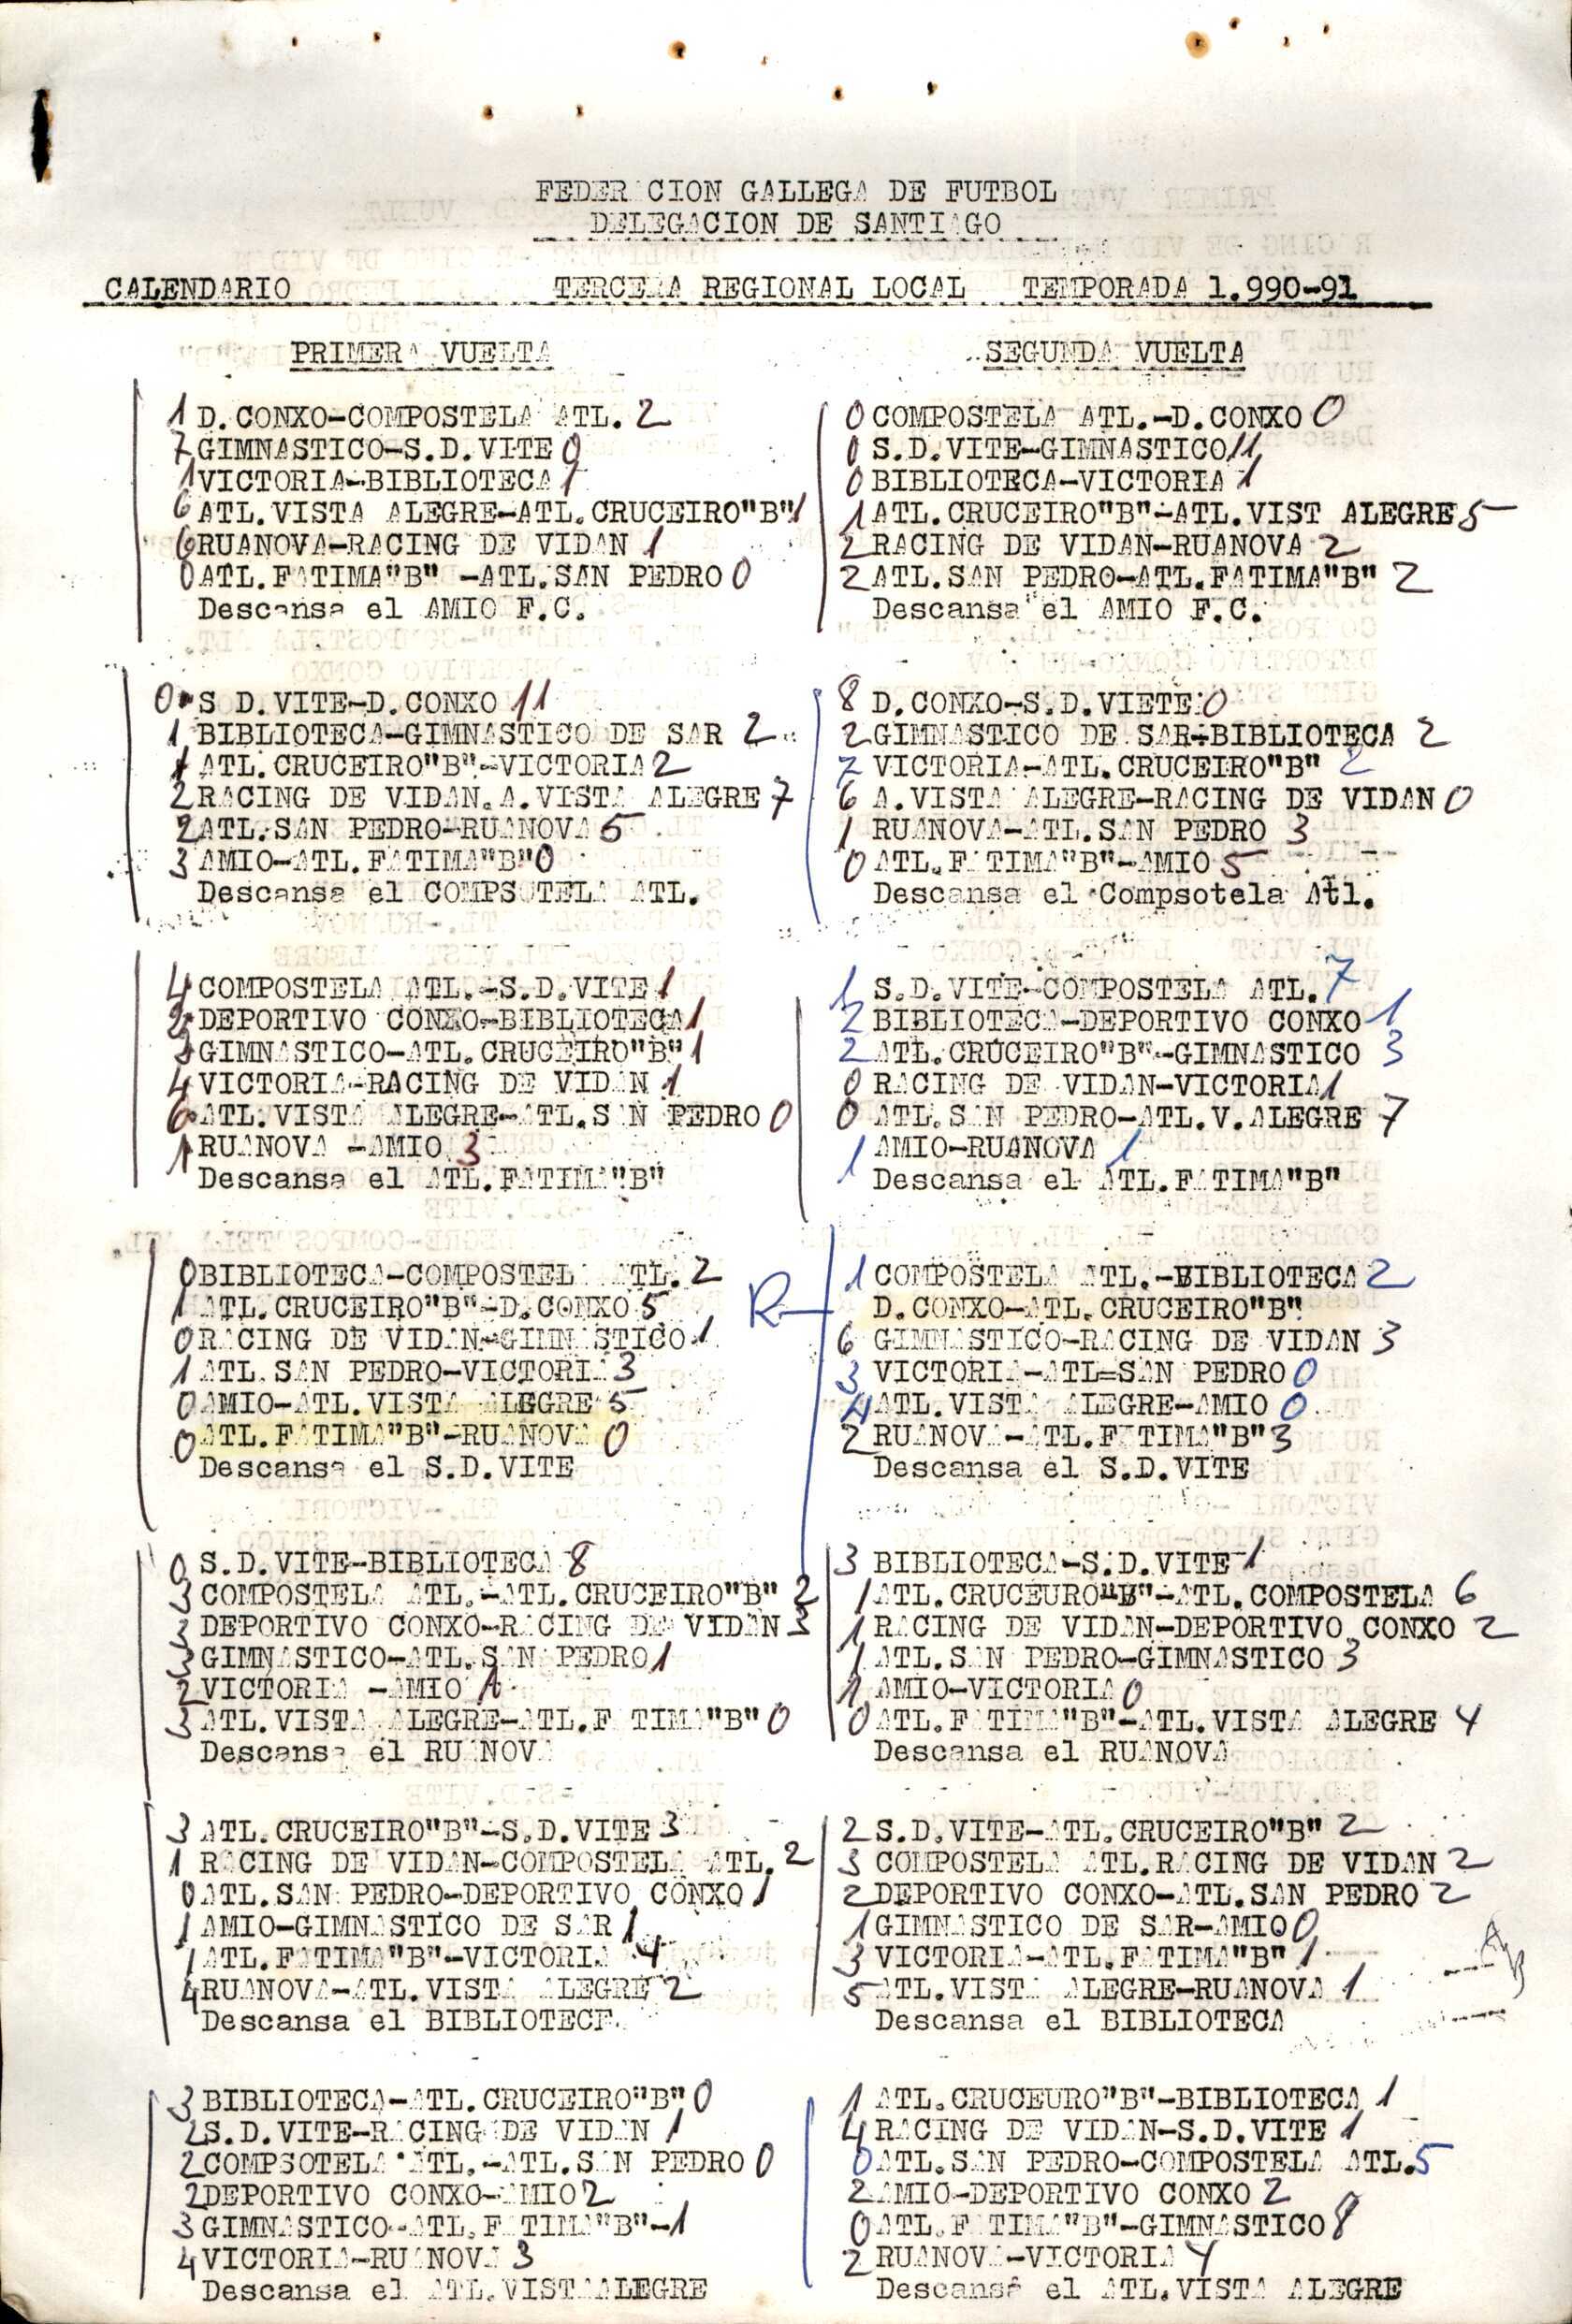 FEDERACION GALLEGA DE FUTBOL
DELEGACION DE SANTIAGO
CALENDARIO TERCERA REGIONAL LOCAL TEMPORADA 1.990-91
PRIMERA VUELTA
1 D. CONXO-COMPOSTELA ATL. 2
7 GIMNASTICO-S.D.VITE 0
1 VICTORIA-BIBLIOTECA 1
6 ATL.VISTA ALEGRE-ATL.CRUCEIRO"B" 1
6 RUANOVA-RACING DE VIDAN 1
0 ATL.FATIMA"B" -ATL.SAN PEDRO 0
Descansa el AMIO F.C.
0 S D.VITE-D.CONXO 11
1 BIBLIOTECA-GIMNASTICO DE SAR 2
1 ATL.CRUCEIRO"B"-VICTORIA 2
2 RACING DE VIDAN.A.VISTA ALEGRE 7
2 ATL.SAN PEDRO-RUANOVA 5
3 AMIO-ATL.FATIMA"B" 0
Descansa el COMPSOTELA ATL.
4 COMPOSTELA ATL.-S.D.VITE 1
2 DEPORTIVO CONXO-BIBLIOTECA 1
GIMNASTICO-ATL.CRUCEIRO"B" 1
4 VICTORIA-RACING DE VIDAN 1
6 ATL.VISTA ALEGRE-ATL.SAN PEDRO 0
1 RUANOVA -AMIO 3
Descansa el ATL.FATIMA"B"
0 BIBLIOTECA-COMPOSTELA ATL. 2
1 ATL.CRUCEIRO"B"-D.CONXO 5
0 RACING DE VIDAN-GIMNASTICO 1
1 ATL.SAN PEDRO-VICTORIA 3
0 AMIO-ATL.VISTA ALEGRE 5
0 ATL.FATIMA"B"-RUANOVA 0
Descansa el S.D.VITE
0 S.D.VITE-BIBLIOTECA 8
3 COMPOSTELA ATL.-ATL.CRUCEIRO"B" 2
3 DEPORTIVO CONXO-RACING DE VIDAN 3
3 GIMNASTICO-ATL.SAN PEDRO 1
2 VICTORIA -AMIO 1
3 ATL.VISTA ALEGRE-ATL.FATIMA"B" 0
Descansa el RUANOVA
3 ATL.CRUCEIRO"B"-S.D.VITE 3
1 RACING DE VIDAN-COMPOSTELA ATL. 2
0 ATL.SAN PEDRO-DEPORTIVO CONXO 1
1 AMIO-GIMNASTICO DE SAR 1
1 ATL.FATIMA"B"-VICTORIA 4
4 RUANOVA-ATL.VISTA ALEGRE 2
Descansa el
3 BIBLIOTECA-ATL.CRUCEIRO"B" 0
2 S.D.VITE-RACING DE VIDAN 1
2 COMPSOTELA ATL.-ATL.SAN PEDRO 0
2 DEPORTIVO CONXO-AMIO 2
3 GIMNASTICO-ATL.FATIMA"B"-1
4 VICTORIA-RUANOVA 3
Descansa el ATL.VISTAALEGRE
SEGUNDA VUELTA
0 COMPOSTELA ATL.-D.CONXO 0
0 S.D.VITE-GIMNASTICO 11
0 BIBLIOTECA-VICTORIA 1
1 ATL.CRUCEIRO"B"-ATL.VIST ALEGRE 5
2 RACING DE VIDAN-RUANOVA 2
2 ATL.SAN PEDRO-ATL.FATIMA"B" 2
Descansa el AMIO F.C.
8 D.CONXO-S.D.VIETE 0
2 GIMNASTICO DE SAR-BIBLIOTECA 2
7 VICTORIA-ATL.CRUCEIRO"B" 2
6 A.VISTA ALEGRE-RACING DE VIDAN 0
1 RUANOVA-ATL.SAN PEDRO 3
0 ATL.FATIMA"B"-AMIO 5
Descansa el Compsotela Atl.
1 S.D.VITE-COMPOSTELA ATL. 7
2 BIBLIOTECA-DEPORTIVO CONXO 1
2 ATL.CRUCEIRO"B"-GIMNASTICO 3
0 RACING DE VIDAN-VICTORIA 1
0 ATL.SAN PEDRO-ATL.V.ALEGRE 7
1 AMIO-RUANOVA 1
Descansa el ATL.FATIMA"B"
1 COMPOSTELA ATL.-BIBLIOTECA 2
R D.CONXO-ATL.CRUCEIRO"B"
6 GIMNASTICO-RACING DE VIDAN 3
3 VICTORIA-ATL=SAN PEDRO 0
4 ATL.VISTA ALEGRE-AMIO 0
2 RUANOVA-ATL.FATIMA"B" 3
Descansa el S.D.VITE
3 BIBLIOTECA-S.D.VITE 1
1 ATL.CRUCEURO"B"-ATL.COMPOSTELA 6
1 RACING DE VIDAN-DEPORTIVO CONXO 2
1 ATL.SAN PEDRO-GIMNASTICO 3
1 AMIO-VICTORIA 0
0 ATL.FATIMA"B"-ATL.VISTA ALEGRE 4
Descansa el RUANOVA
2 S.D.VITE-ATL.CRUCEIRO"B" 2
3 COMPOSTELA ATL.RACING DE VIDAN 2
2 DEPORTIVO CONXO-ATL.SAN PEDRO 2
1 GIMNASTICO DE SAR-AMIO 0
3 VICTORIA-ATL.FATIMA"B" 1
5 ATL.VISTA ALEGRE-RUANOVA 1
Descansa el BIBLIOTECA
1 ATL.CRUCEURO"B"-BIBLIOTECA 1
4 RACING DE VIDAN-S.D.VITE 1
0 ATL.SAN PEDRO-COMPOSTELA ATL. 5
2 AMIO-DEPORTIVO CONXO 2
0 ATL.FATIMA"B"-GIMNASTICO 8
2 RUANOVA-VICTORIA 4
Descansa el ATL.VISTA ALEGRE